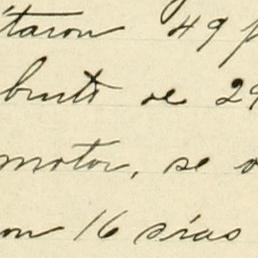 taron 49 p
bruto de 29
motor, se o
on 16 dias